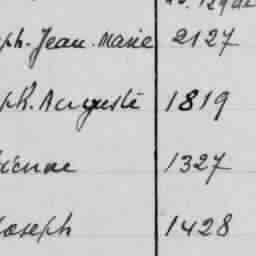 ph. Jean. Marie 2127
ph. Auguste 1819
ienne 1327
Joseph 1428